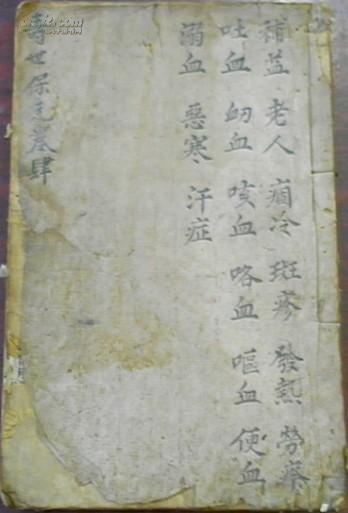 補益 老人 痼冷 斑疹 發熱 勞瘵
吐血 衂血 咳血 咯血 嘔血 便血
溺血 惡寒 汗症
壽世保元卷肆